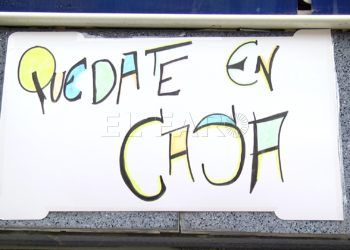 QUEDATE EN
CASA
EL FARO